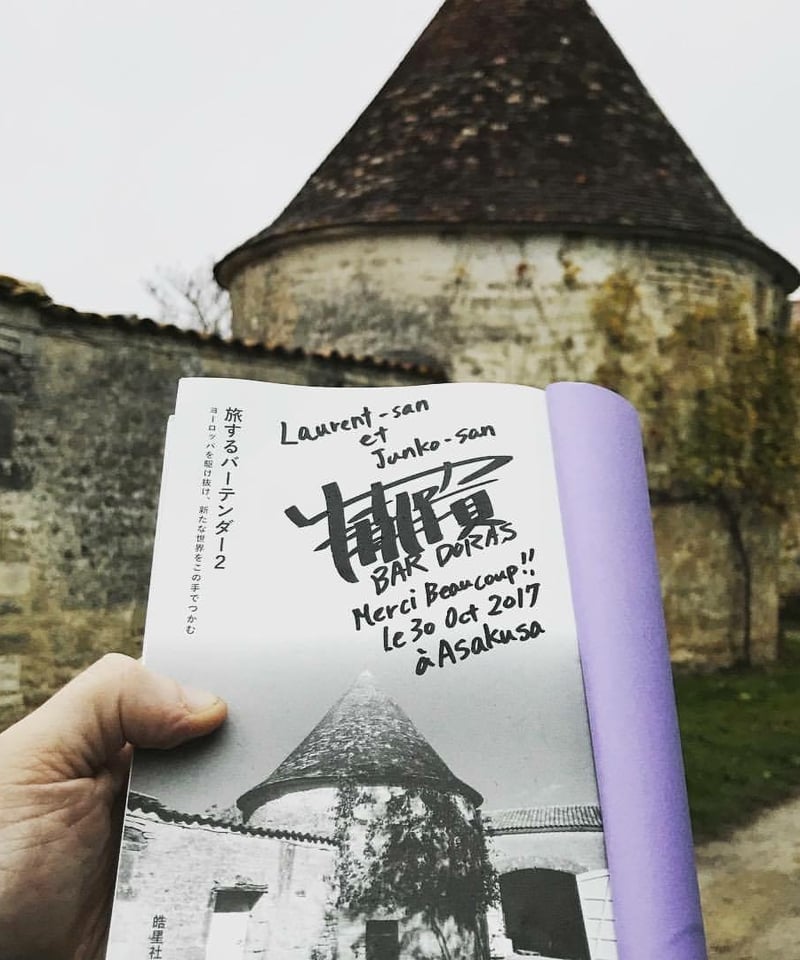 旅するバーテンダー2
ヨーロッパを駆け抜け、新たな世界をこの手でつかむ
Laurent-san
et
Junko-san
BAR DORAS
Merci Beaucoup!!
le 30 Oct 2017
à Asakusa
皓星社